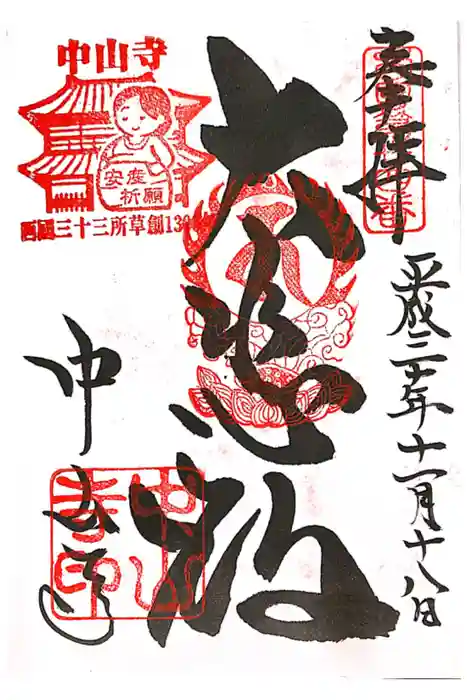 奉拝
平成三十年十一月十八日
大悲殿
中山寺
中山寺
安産
祈願
西國三十三所草創130